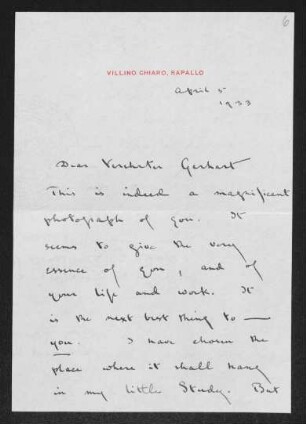 6
VILLINO CHIARO, RAPALLO
April 5
1933
Dear Verehrter Gerhart
This is indeed a magnificent
photograph of you. It
seems to give the very
essence of you, and of
your life and work. It
is the next best thing to —
you. I have chosen the
place where it shall hang
in my little Study. But